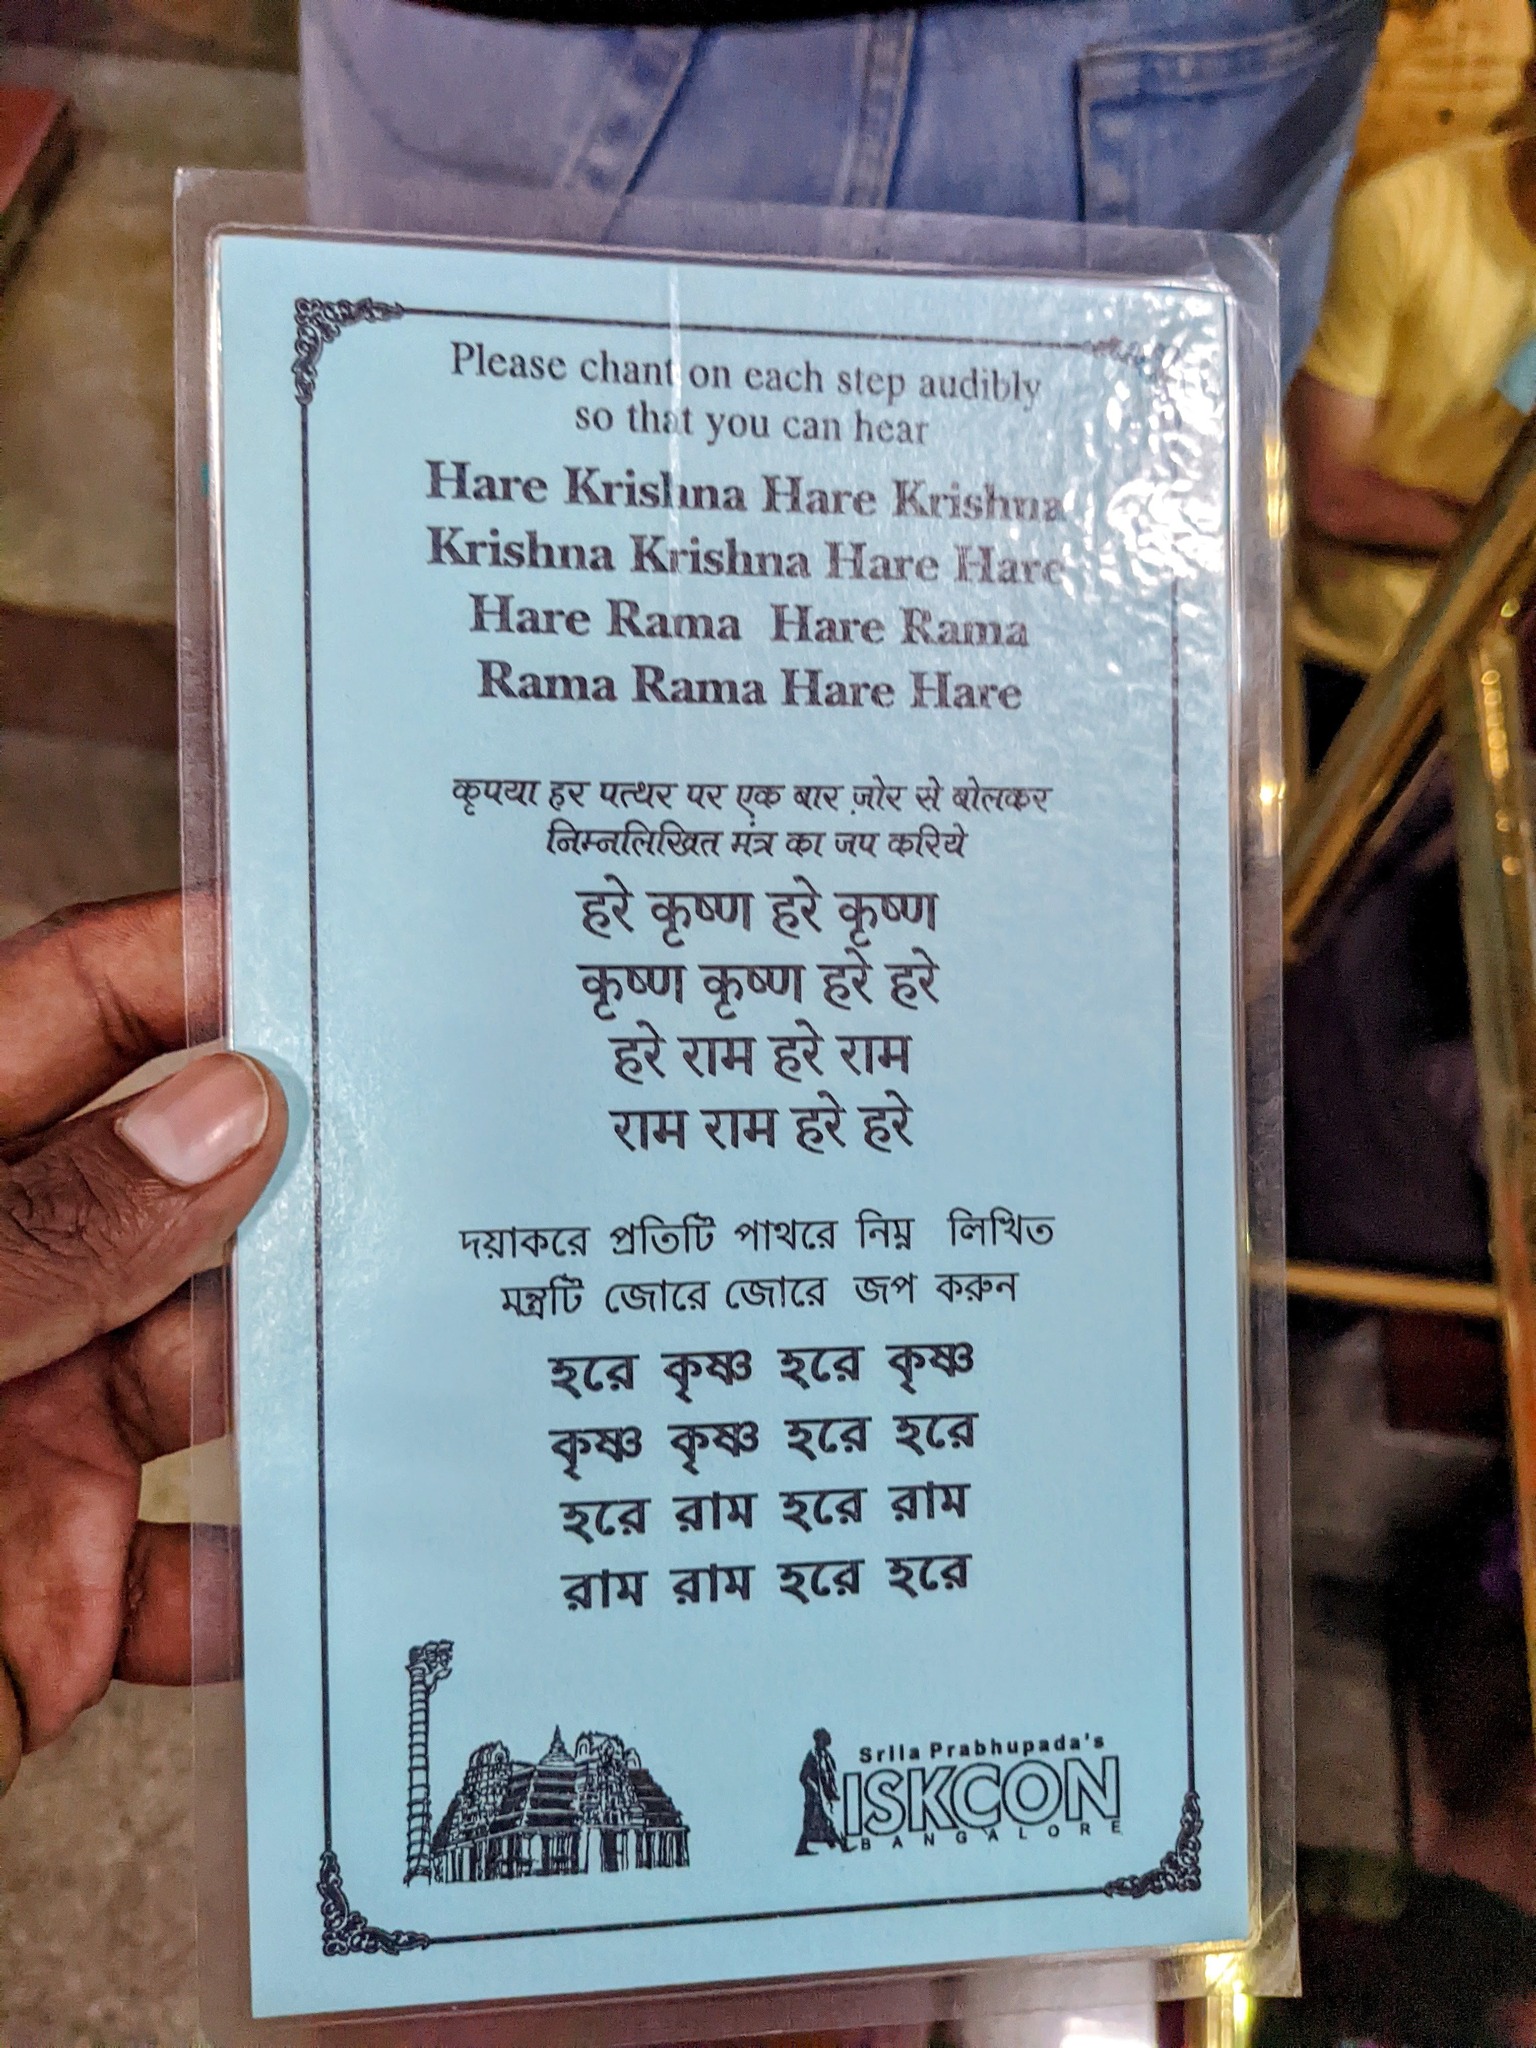 Please chant on each step audibly
so that you can hear
Hare Krishna Hare Krishna
Krishna Krishna Hare Hare
Hare Rama Hare Rama
Rama Rama Hare Hare
कृपया हर पत्थर पर एक बार ज़ोर से बोलकर
निम्नलिखित मंत्र का जप करिये
हरे कृष्ण हरे कृष्ण
कृष्ण कृष्ण हरे हरे
हरे राम हरे राम
राम राम हरे हरे
দয়াকরে প্রতিটি পাথরে নিম্ন লিখিত
মন্ত্রটি জোরে জোরে জপ করুন
হরে কৃষ্ণ হরে কৃষ্ণ
কৃষ্ণ কৃষ্ণ হরে হরে
হরে রাম হরে রাম
রাম রাম হরে হরে
Srila Prabhupada's
ISKCON
BANGALORE